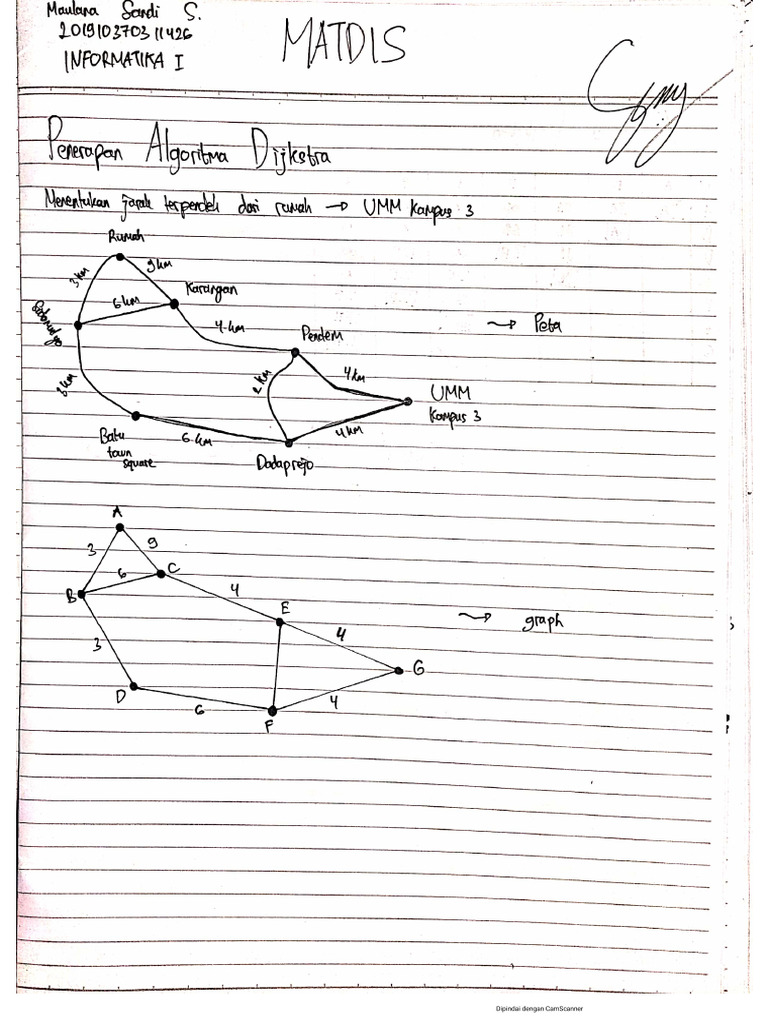 Maulana Sandi S.
201910370311426
INFORMATIKA I
MATDIS
Penerapan Algoritma Dijkstra
Menentukan jarak terpendek dari rumah → UMM Kampus 3
Rumah
3 km
9 km
Karangan
6 km
Sidomulyo
4 km
Pendem
→ Peta
2 km
4 km
UMM
Kampus 3
3 km
6 km
4 km
Batu
town
square
Dadaprejo
A
3
9
6
C
B
4
E
→ graph
4
3
G
D
6
F
4
Dipindai dengan CamScanner